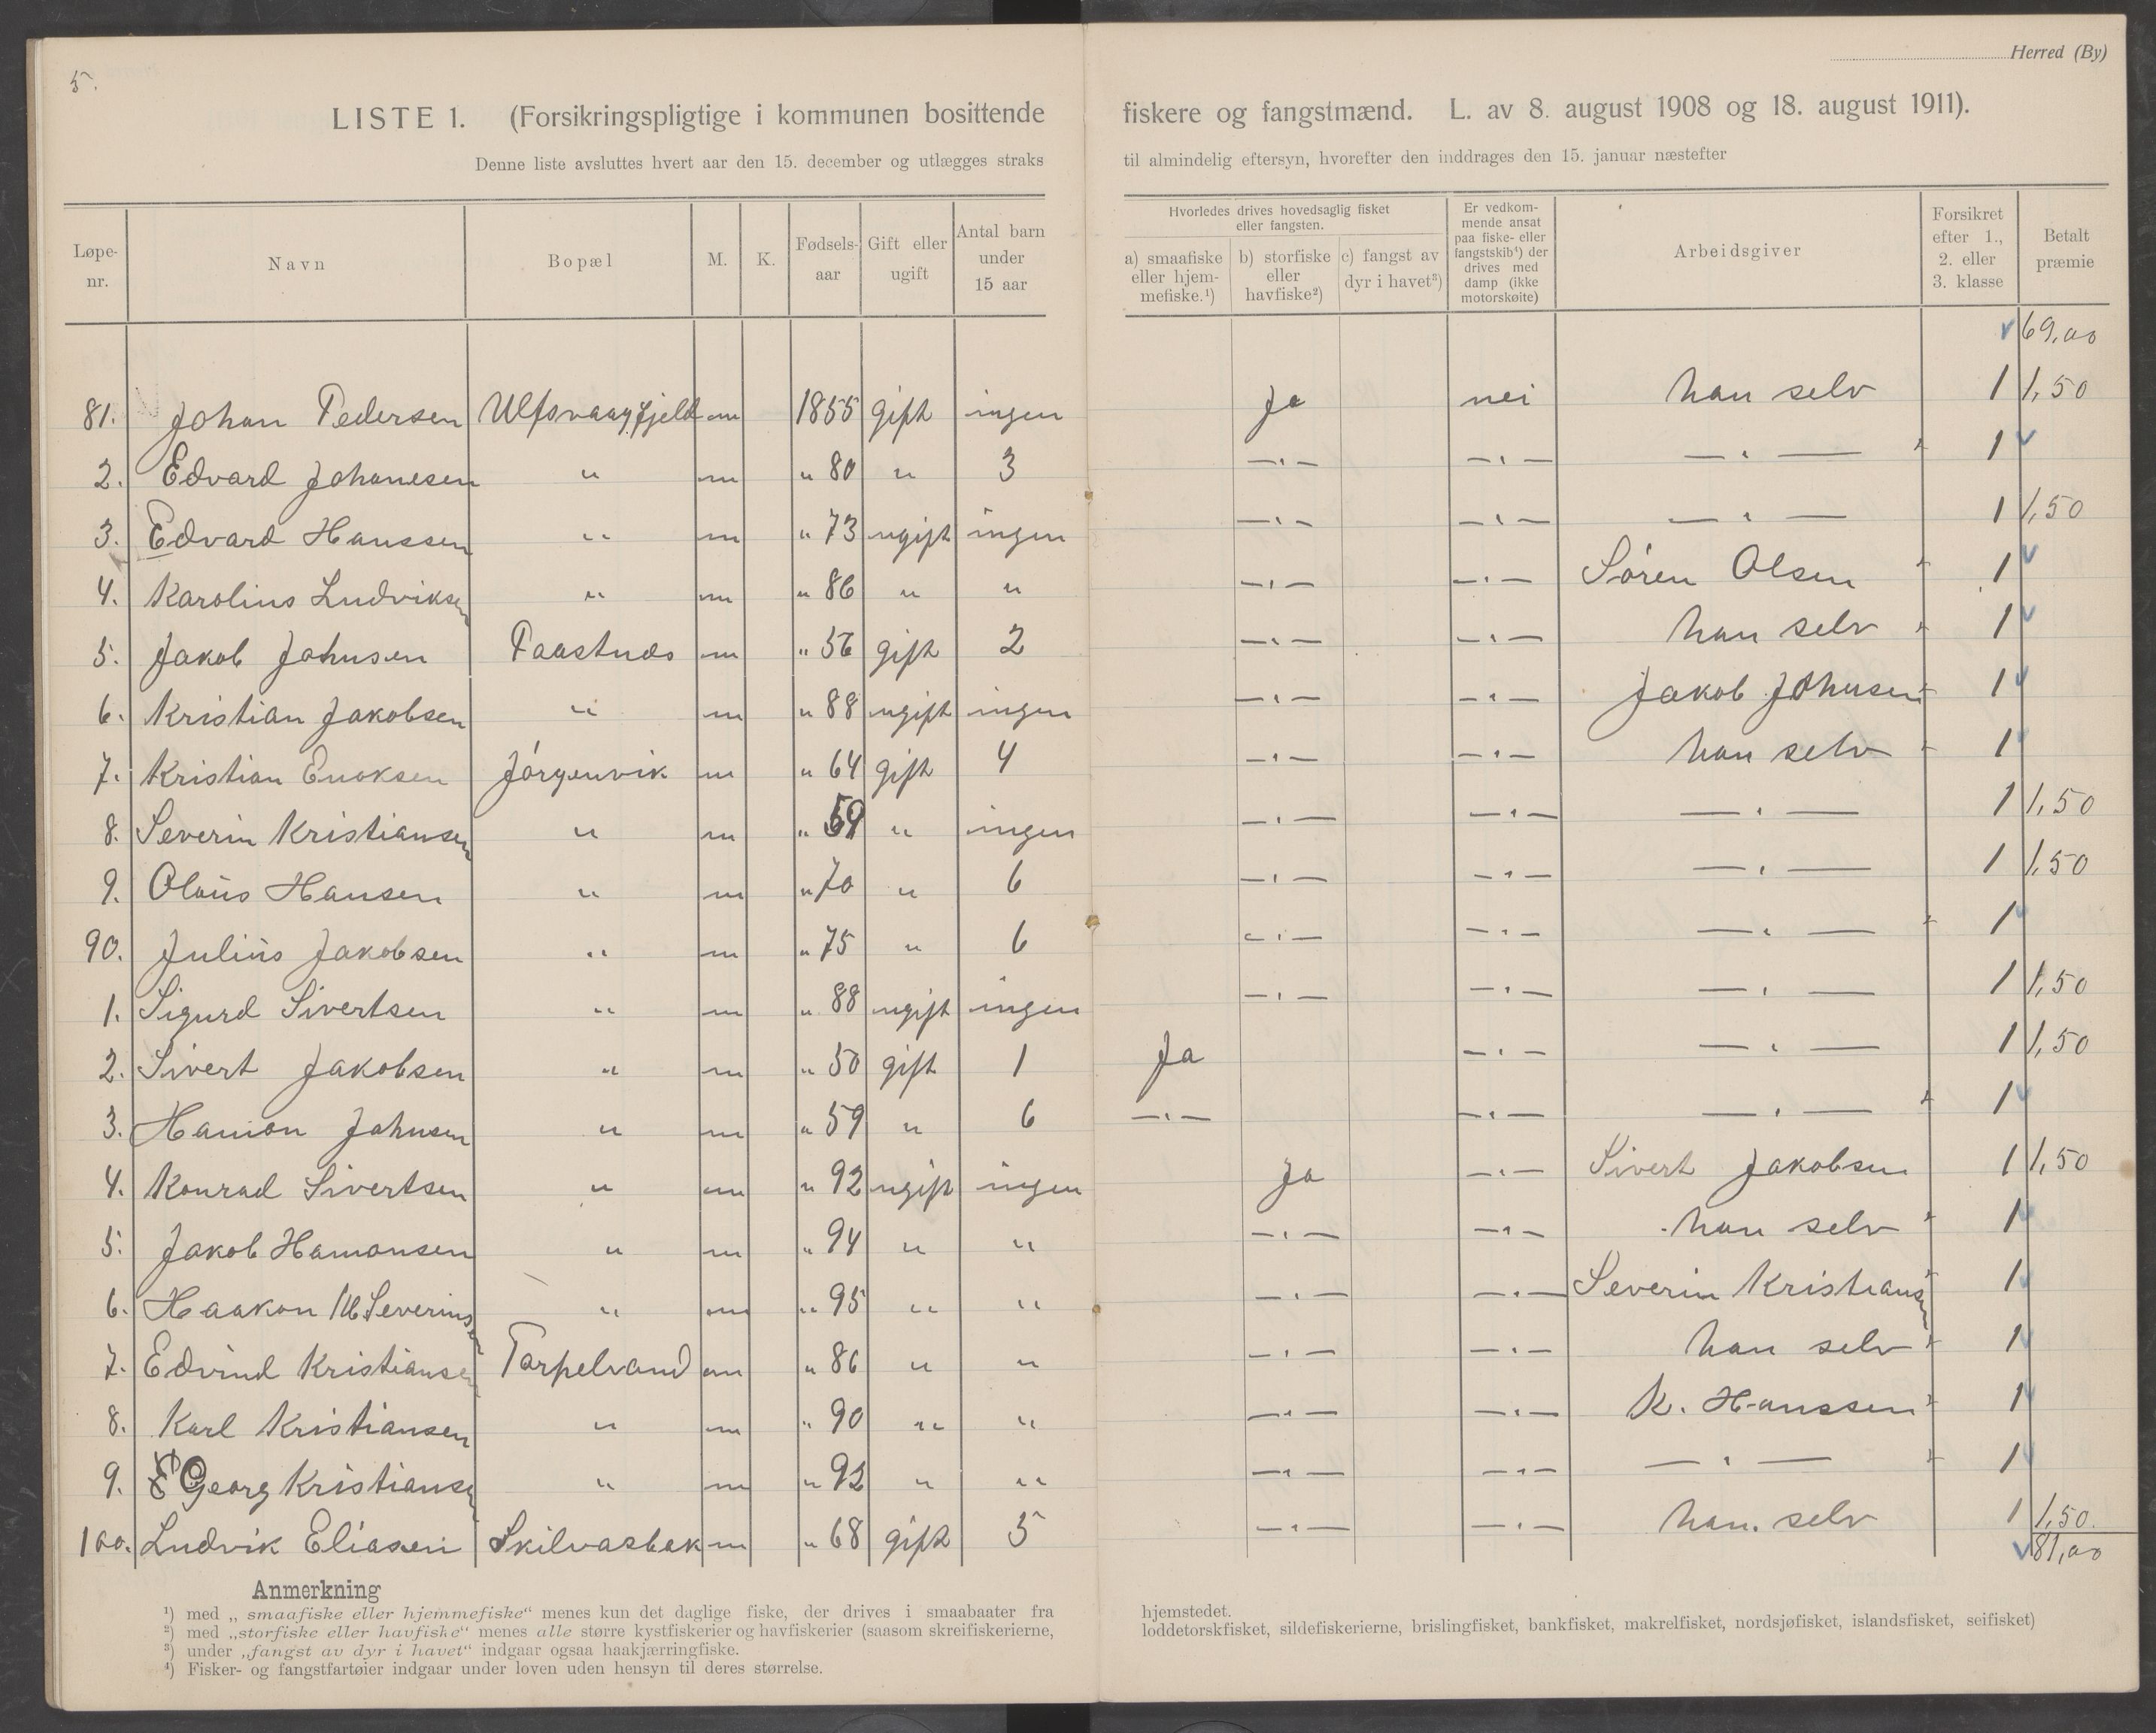 5.
Herred (By)
LISTE 1. (Forsikringspligtige i kommunen bosittende fiskere og fangstmænd. L. av 8. august 1908 og 18. august 1911).
Denne liste avsluttes hvert aar den 15. december og utlægges straks til almindelig eftersyn, hvorefter den inddrages den 15. januar næstefter
Løpe-nr. Navn Bopæl M. K. Fødsels-aar Gift eller ugift Antal barn under 15 aar Hvorledes drives hovedsaglig fisket eller fangsten. a) smaafiske eller hjem-mefiske.¹) b) storfiske eller havfiske²) c) fangst av dyr i havet³) Er vedkom-mende ansat paa fiske- eller fangstskib⁴) der drives med damp (ikke motorskøite) Arbeidsgiver Forsikret efter 1., 2. eller 3. klasse Betalt præmie
69,00
81. Johan Pedersen Ulfsvaagfjeld m 1855 gift ingen Ja nei han selv 1 1,50
2. Edvard Johanesen " m " 80 " 3 —„— —„— —„— 1
3. Edvard Hanssen " m " 73 ugift ingen —„— —„— —„— 1 1,50
4. Karolius Ludviksen " m " 86 " " —„— —„— Søren Olsen 1
5. Jakob Johnsen Paastnes m " 56 gift 2 —„— —„— han selv 1
6. Kristian Jakobsen " m " 88 ugift ingen —„— —„— Jakob Johnsen 1
7. Kristian Enoksen Jørgenvik m " 64 gift 4 —„— —„— han selv 1
8. Severin Kristiansen " m " 69 " ingen —„— —„— —„— 1 1,50
9. Olaus Hansen " m " 70 " 6 —„— —„— —„— 1 1,50
90. Julius Jakobsen " m " 75 " 6 —„— —„— —„— 1
1. Sigurd Sivertsen " m " 88 ugift ingen —„— —„— —„— 1 1,50
2. Sivert Jakobsen " m " 50 gift 1 Ja —„— —„— 1 1,50
3. Hamon Johnsen " m " 59 " 6 —„— —„— —„— 1
4. Konrad Sivertsen " m " 92 ugift ingen Ja —„— Sivert Jakobsen 1 1,50
5. Jakob Hamonsen " m " 94 " " —„— —„— han selv 1
6. Haakon M. Severinsen " m " 95 " " —„— —„— Severin Kristiansen 1
7. Edvind Kristiansen Torpelvand m " 86 " " —„— —„— han selv 1
8. Karl Kristiansen " m " 90 " " —„— —„— K. Hanssen 1
9. Georg Kristiansen " m " 92 " " —„— —„— —„— 1
100. Ludvik Eliasen Skilvasbak m " 68 gift 5 —„— —„— han selv 1 1,50
81,00
Anmerkning
¹) med „smaafiske eller hjemmefiske“ menes kun det daglige fiske, der drives i smaabaater fra hjemstedet.
²) med „storfiske eller havfiske“ menes alle større kystfiskerier og havfiskerier (saasom skreifiskerierne, loddetorskfisket, sildefiskerierne, brislingfisket, bankfisket, makrelfisket, nordsjøfisket, islandsfisket, seifisket)
³) under „fangst av dyr i havet“ indgaar ogsaa haakjærringfiske.
⁴) Fisker- og fangstfartøier indgaar under loven uden hensyn til deres størrelse.